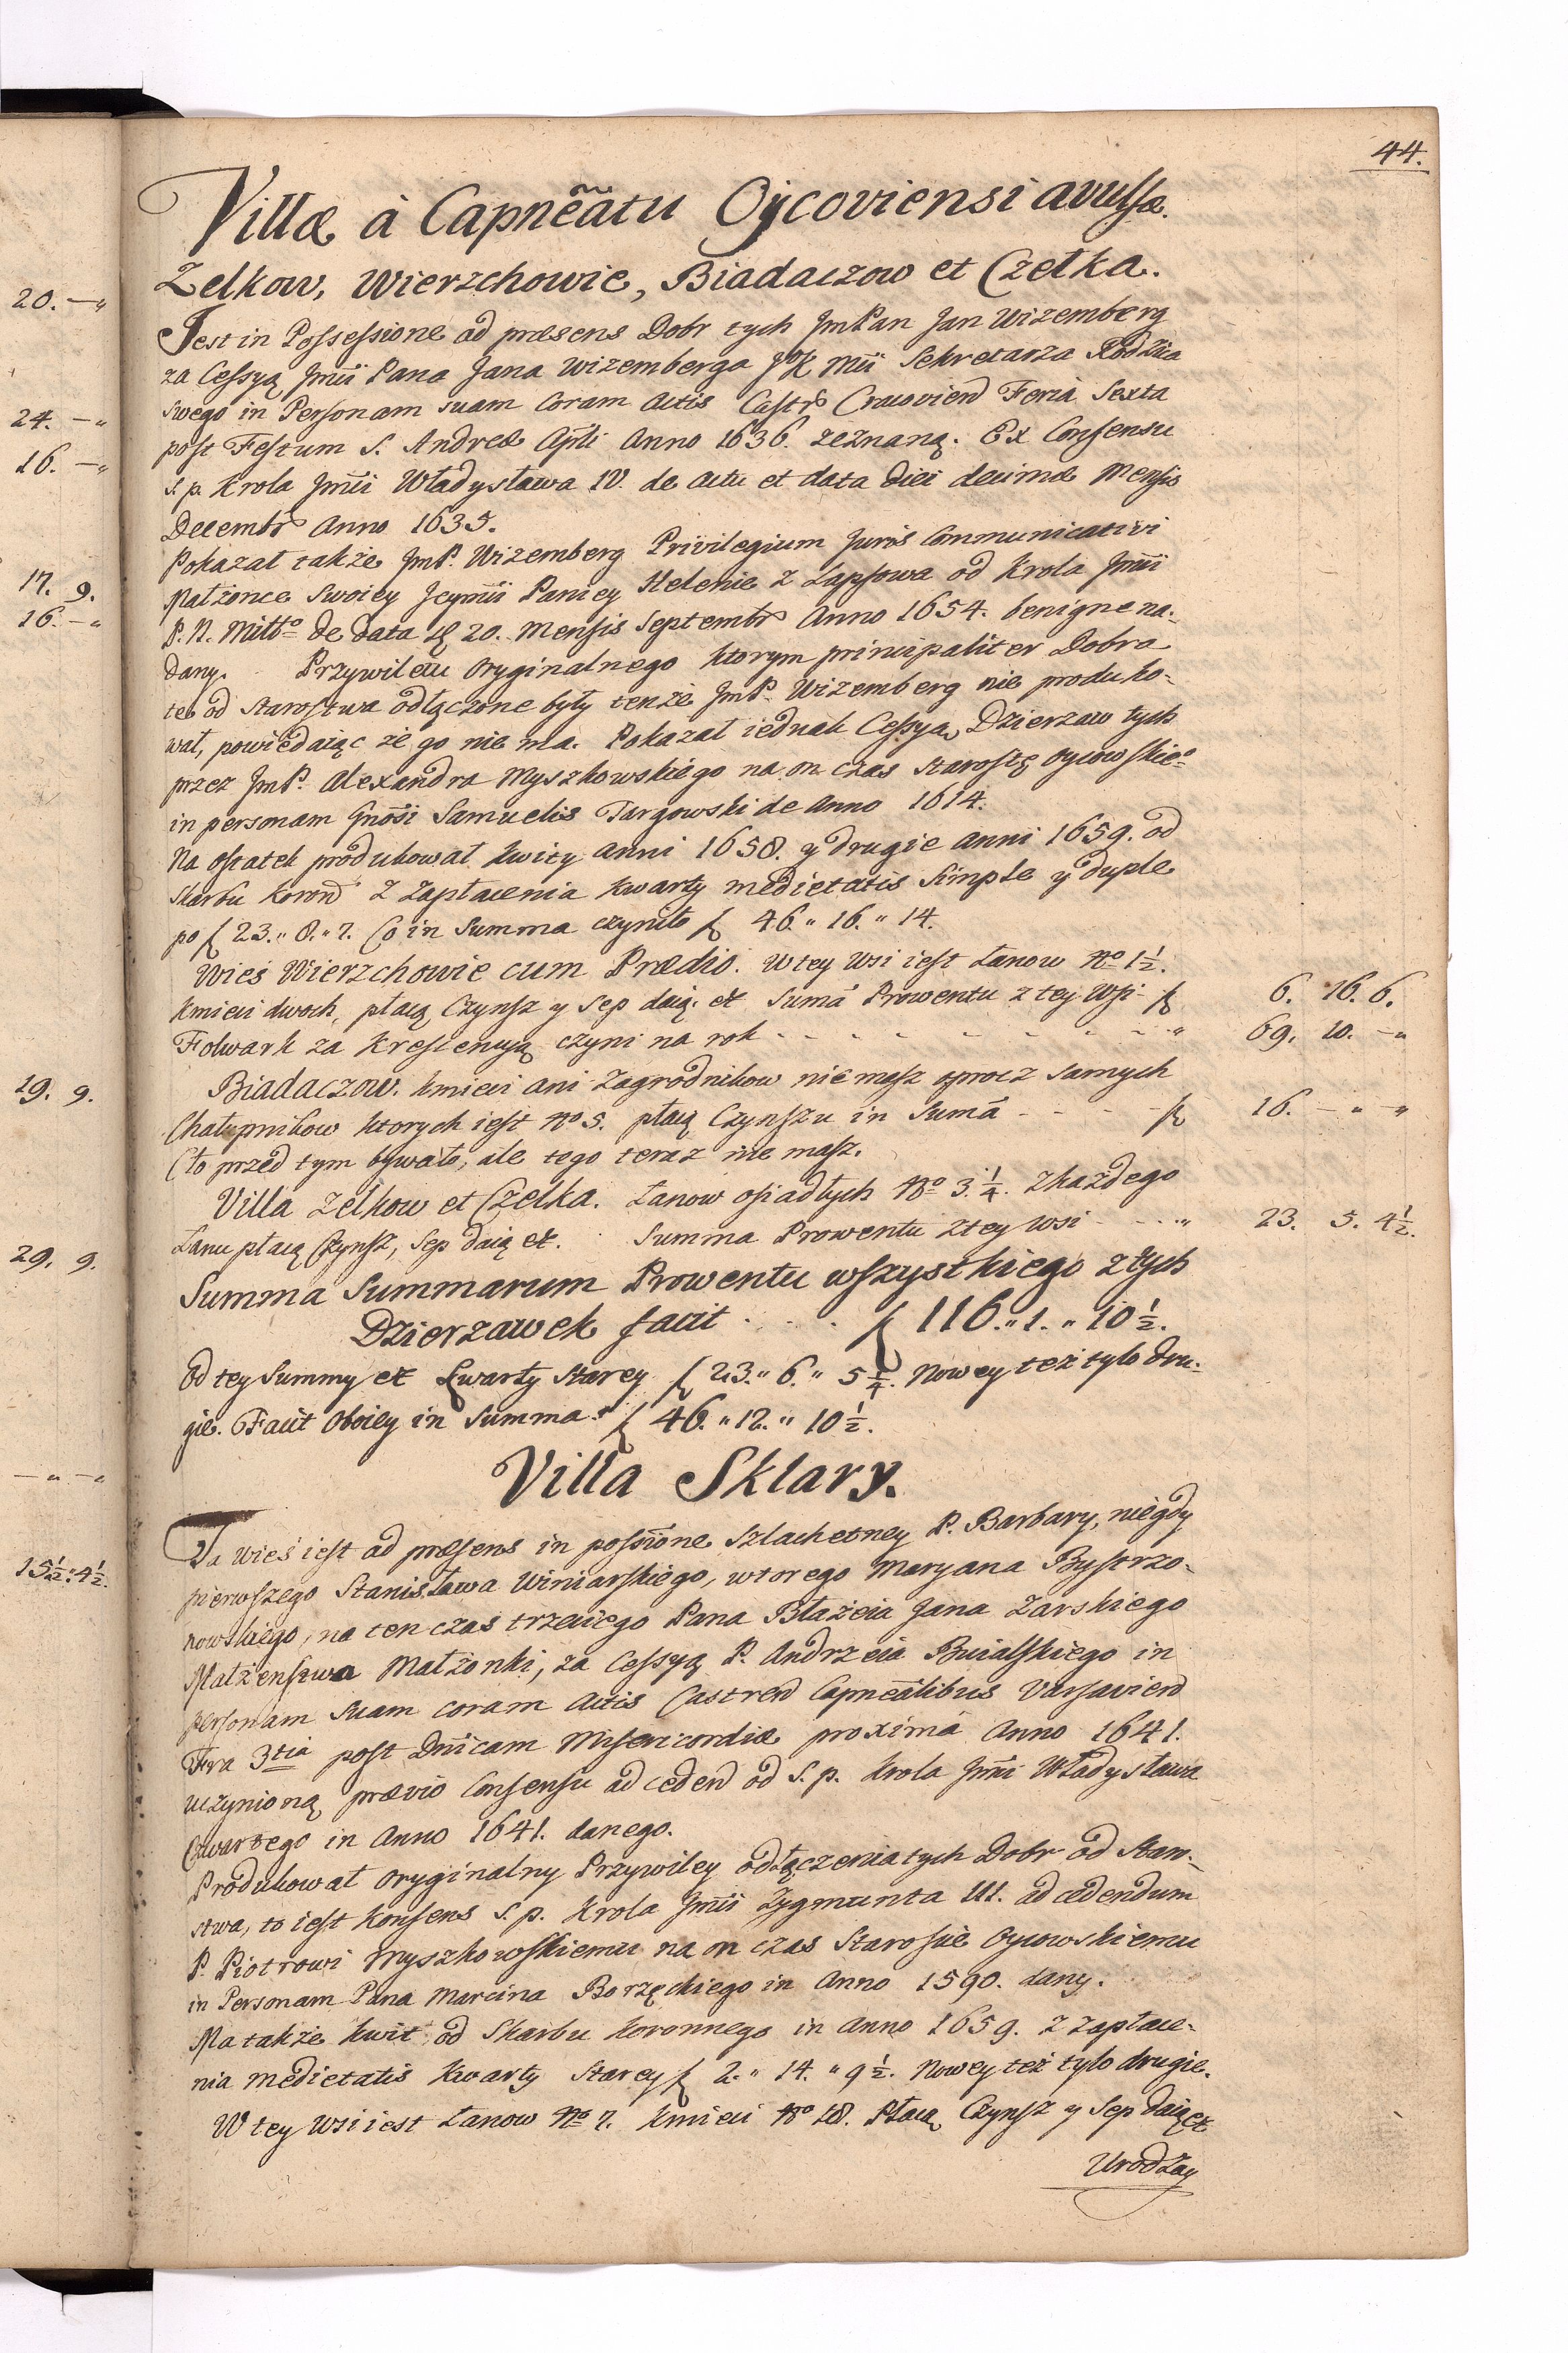 44.
Villæ à Capnẽatu Ojcoviensi avulsæ.
Zelkow, Wierzchowie, Biadaczow et Czelka.
Jest in Possessione ad præsens Dobr tych JmPan Jan Wizemberg
za Cessyą Jmći Pana Jana Wizemberga JoK Mći Sekretarza Rodzica
swego in Personam suam Coram Actis Castr Cracovien Ferià Sexta
post Festum S. Andreæ Apłi Anno 1636. zeznaną. Ex Consensu
S. p. Krola Jmći Władysława IV. de Actu et data diei decimæ Mensis
Decembr Anno 1635.
Pokazał także JmP. Wizemberg Privilegium Juris Communicativi
Małżonce Swoiey Jeymći Paniey Helenie z Łapsowa od Krola Jmći
P. N. Mittо de data 20. Mensis Septembr Anno 1654. benigne na-
dany. Przywileiu Oryginalnego ktorym principaliter Dobra
te od Starostwa odłączone były tenże JmP. Wizemberg nie produko-
wał, powiedaiąc że go nie ma. Pokazał iednak Cessyą Dzierzaw tych
przez JmP. Alexandra Myszkowskiego na on czas Starostę Oycowskieо
in personam Gnosi Samuelis Targowski de Anno 1614.
Na ostatek produkował kwity Anni 1658. y drugie Anni 1659. od
Skarbu Koron z zapłacenia kwarty medietatis Simple y duple
po f 23. " 8. " 7. Co in Summa czyniło f 46. " 16. " 14.
Wieś Wierzchowie cum Prædio. W tey Wsi iest Łanow No 1½.
Kmieci dwoch, płacą Czynsz y Sep daią. et Sumã Prowentu z tey Wsi - f 6. 16. 6.
Folwark za krescencyą czyni na rok - - - - - - - - " 69. 10. - "
Biadaczow. Kmieci ani Zagrodnikow nie masz oprocz samych
Chałupnikow ktorych iest No 5. płacą Czynszu in Sumã - - - - f 16. - " - "
Cło przed tym bywało, ale tego teraz nie masz.
Villa Zelkow et Czelka. Łanow osiadłych No 3. ¼. Z każdego
Łanu płacą Czynsz, Sep daią et. Summa Prowentu z tey Wsi - - - " 23. 5. 4½.
Summa Summarum Prowentu wszystkiego z tych
Dzierzawek facit . . . . f 116. " 1. " 10½.
Od tey Summy et Kwarty Starey f 23. " 6. " 5¼. Nowey też tylo dru-
gie. Facit Oboiey in Summa f 46. " 12. " 10½.
Villa Sklary.
Ta wieś iest ad præsens in possione Szlachetney P. Barbary, niegdy
pierwszego Stanisława Winiarskiego, wtorego Maryana Bystrzo-
nowskiego, na ten czas trzeciego Pana Błażeia Jana Zarskiego
Małżenstwa Małżonki, za Cessyą P. Andrzeia Bialskiego in
personam Suam coram Actis Castren Capnẽalibus Varsavien
Fera 3tia post Dnicam Misericordiæ proximã Anno 1641.
uczynioną, prævio Consensu ad ceden od S. p. Krola Jmći Władysława
Czwartego in Anno 1641. danego.
Produkował Oryginalny Przywiley odłączenia tych Dobr od Staro-
stwa, to iest Konsens S. p. Krola Jmći Zygmunta III. ad cedendum
P. Piotrowi Myszkowskiemu na on czas Staroscie Oycowskiemu
in Personam Pana Marcina Borzęckiego in Anno 1590. dany.
Ma także kwit od Skarbu Koronnego in Anno 1659. z zapłace-
nia medietatis kwarty Starey f 2. " 14. " 9½. Nowey też tylo drugie.
W tey Wsi iest Łanow No 7. Kmieci No 18. Płacą Czynsz y Sep daią et
Urodzay
20. - "
24. - "
16. - "
17. 9.
16. - "
19. 9.
29. 9.
- " - "
15½: 4½.